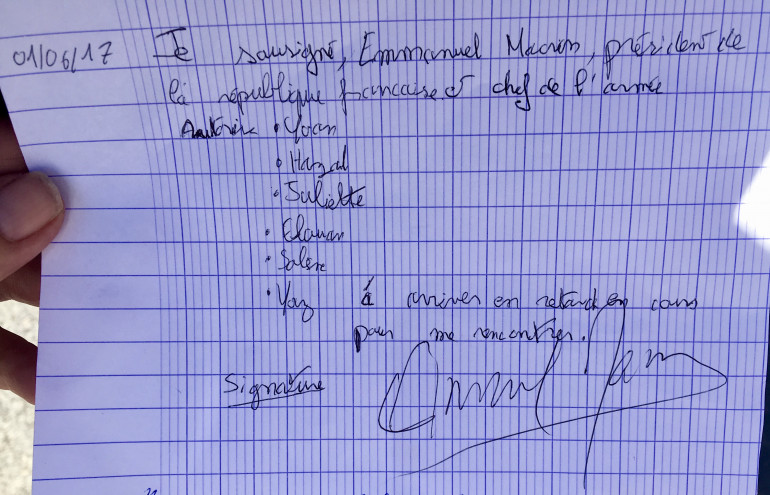 01/06/17 Je sousigné, Emmanuel Macron, président de
la république francaise et chef de l'armée
Autorise • Yvan
• Hazal
• Juliette
• Elouan
•
• Yaz à arriver en retard en cours
pour me rencontrer.
Signature